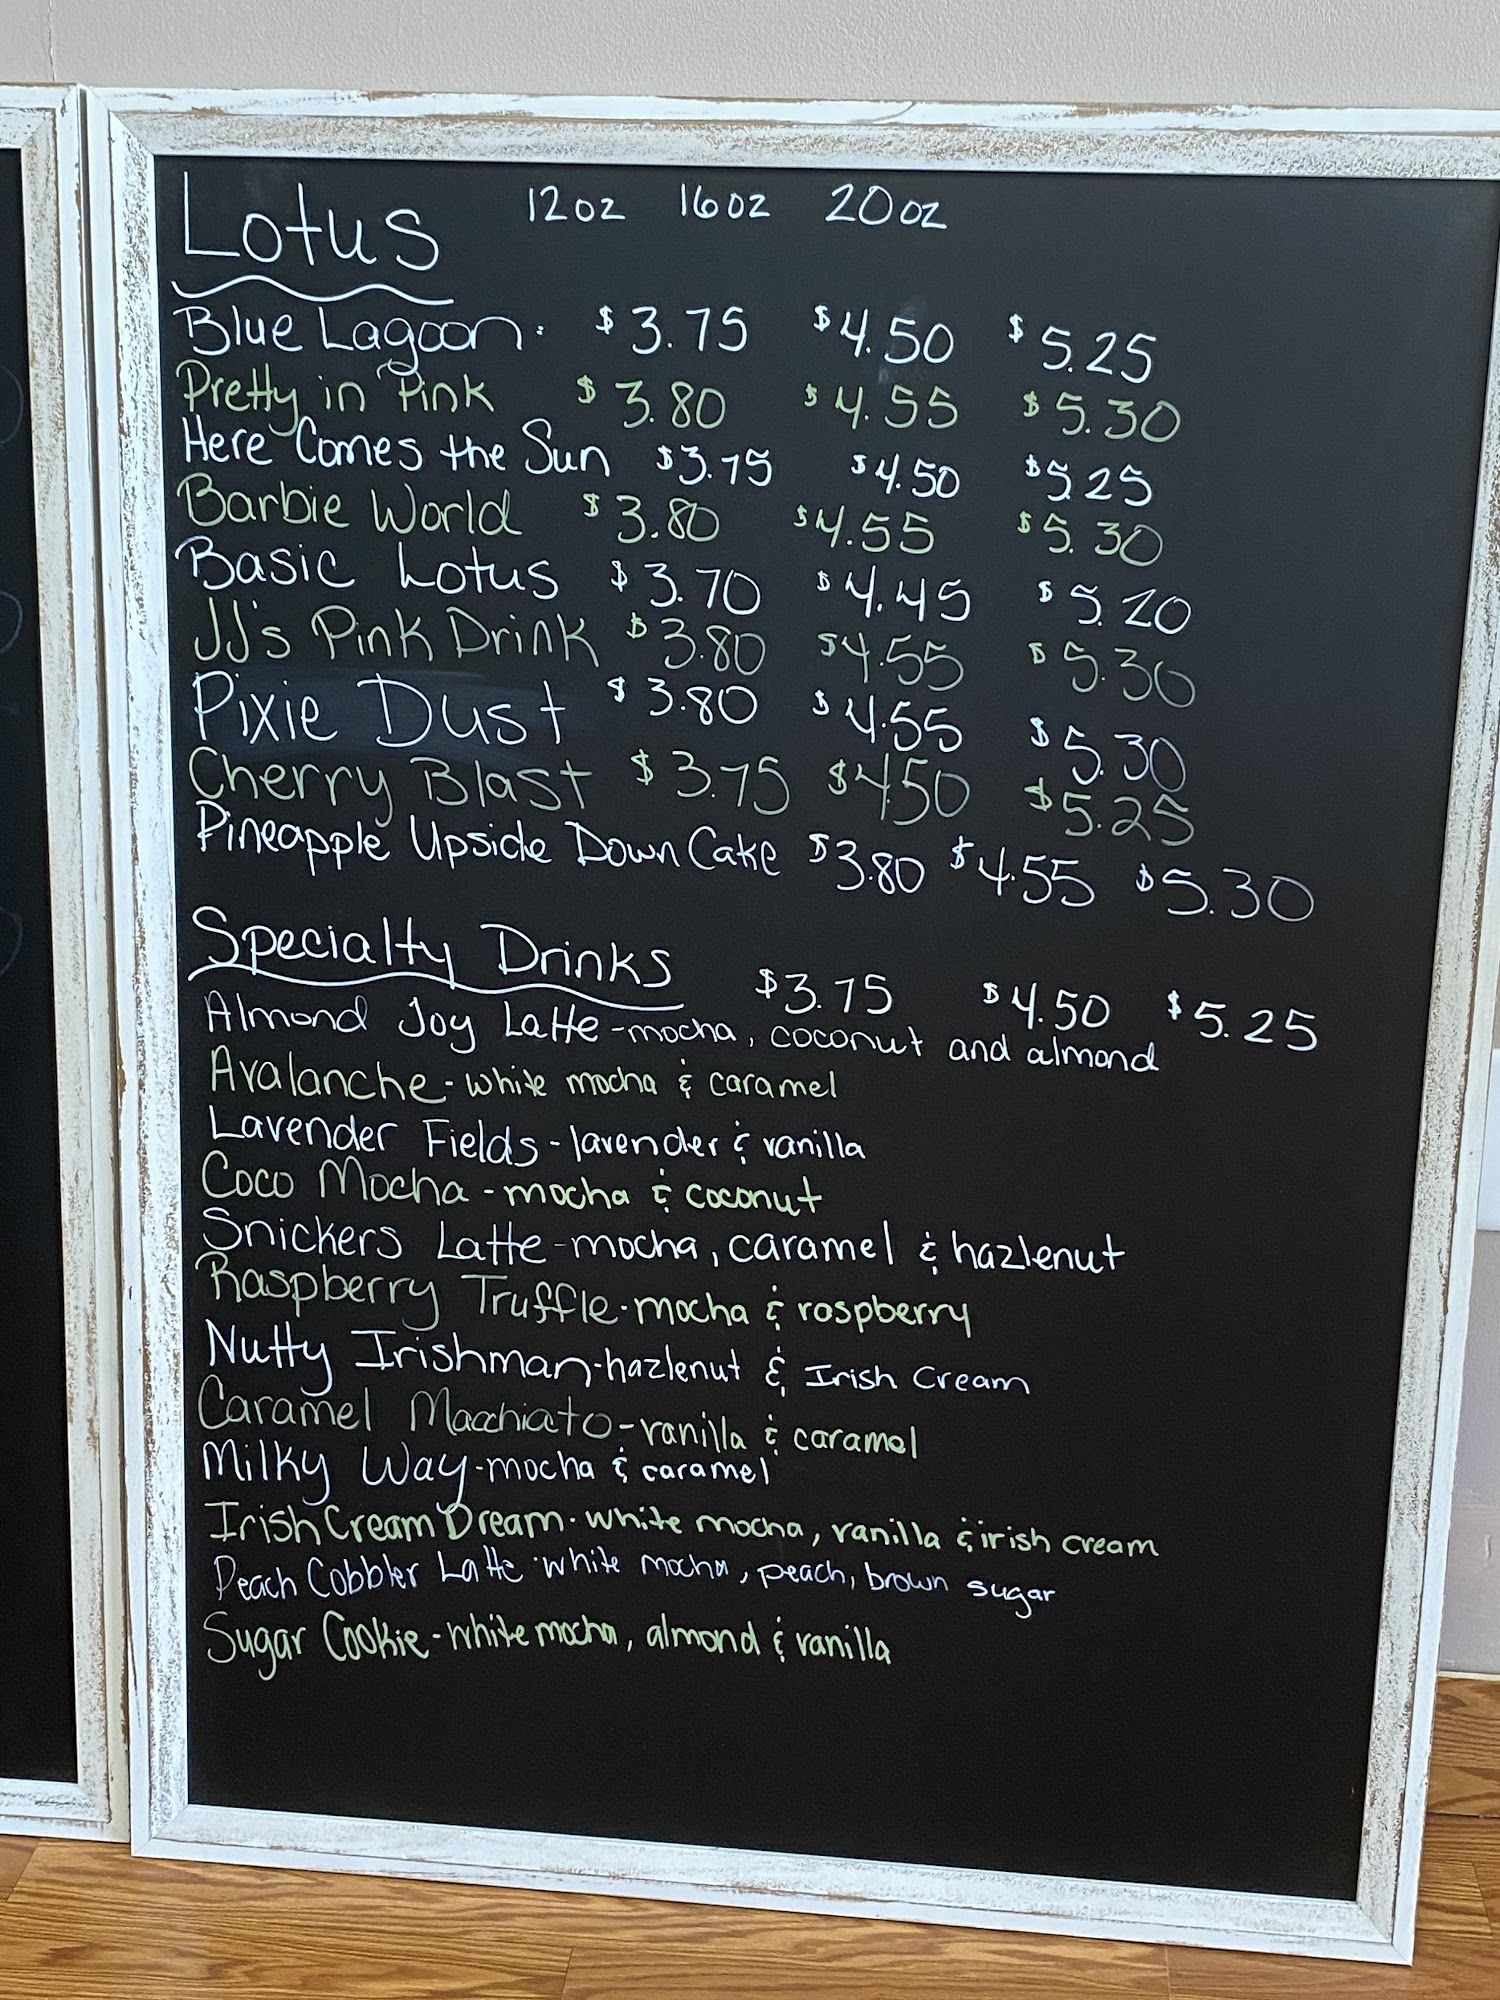 Lotus 12oz 16oz 20oz
Blue Lagoon: $3.75 $4.50 $5.25
Pretty in Pink $3.80 $4.55 $5.30
Here Comes the Sun $3.75 $4.50 $5.25
Barbie World $3.80 $4.55 $5.30
Basic Lotus $3.70 $4.45 $5.20
JJ's Pink Drink $3.80 $4.55 $5.30
Pixie Dust $3.80 $4.55 $5.30
Cherry Blast $3.75 $4.50 $5.25
Pineapple Upside Down Cake $3.80 $4.55 $5.30
Specialty Drinks $3.75 $4.50 $5.25
Almond Joy Latte - mocha, coconut and almond
Avalanche - white mocha & caramel
Lavender Fields - lavender & vanilla
Coco Mocha - mocha & coconut
Snickers Latte - mocha, caramel & hazlenut
Raspberry Truffle - mocha & rospberry
Nutty Irishman - hazlenut & Irish Cream
Caramel Macchiato - vanilla & caramel
Milky Way - mocha & caramel
Irish Cream Dream - white mocha, vanilla & irish cream
Peach Cobbler Latte - white mocha, peach, brown sugar
Sugar Cookie - white mocha, almond & vanilla